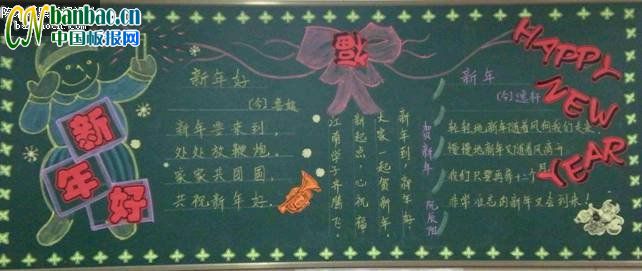 CN banbac.cn
中国板报网
新年好
新年好
(今)
新年要来到，
处处放鞭炮。
家家共团圆，
共祝新年好。
福
贺新年
新年到，新年好，
大家一起贺新年。
新起点，心祝福
江南学子齐腾飞。
新年
(今)
轻轻地新年随着风向我们走来，
慢慢地新年又随着风离开
我们只要再等十二个月
非常难忘的新年又会到来！
HAPPY
NEW
YEAR